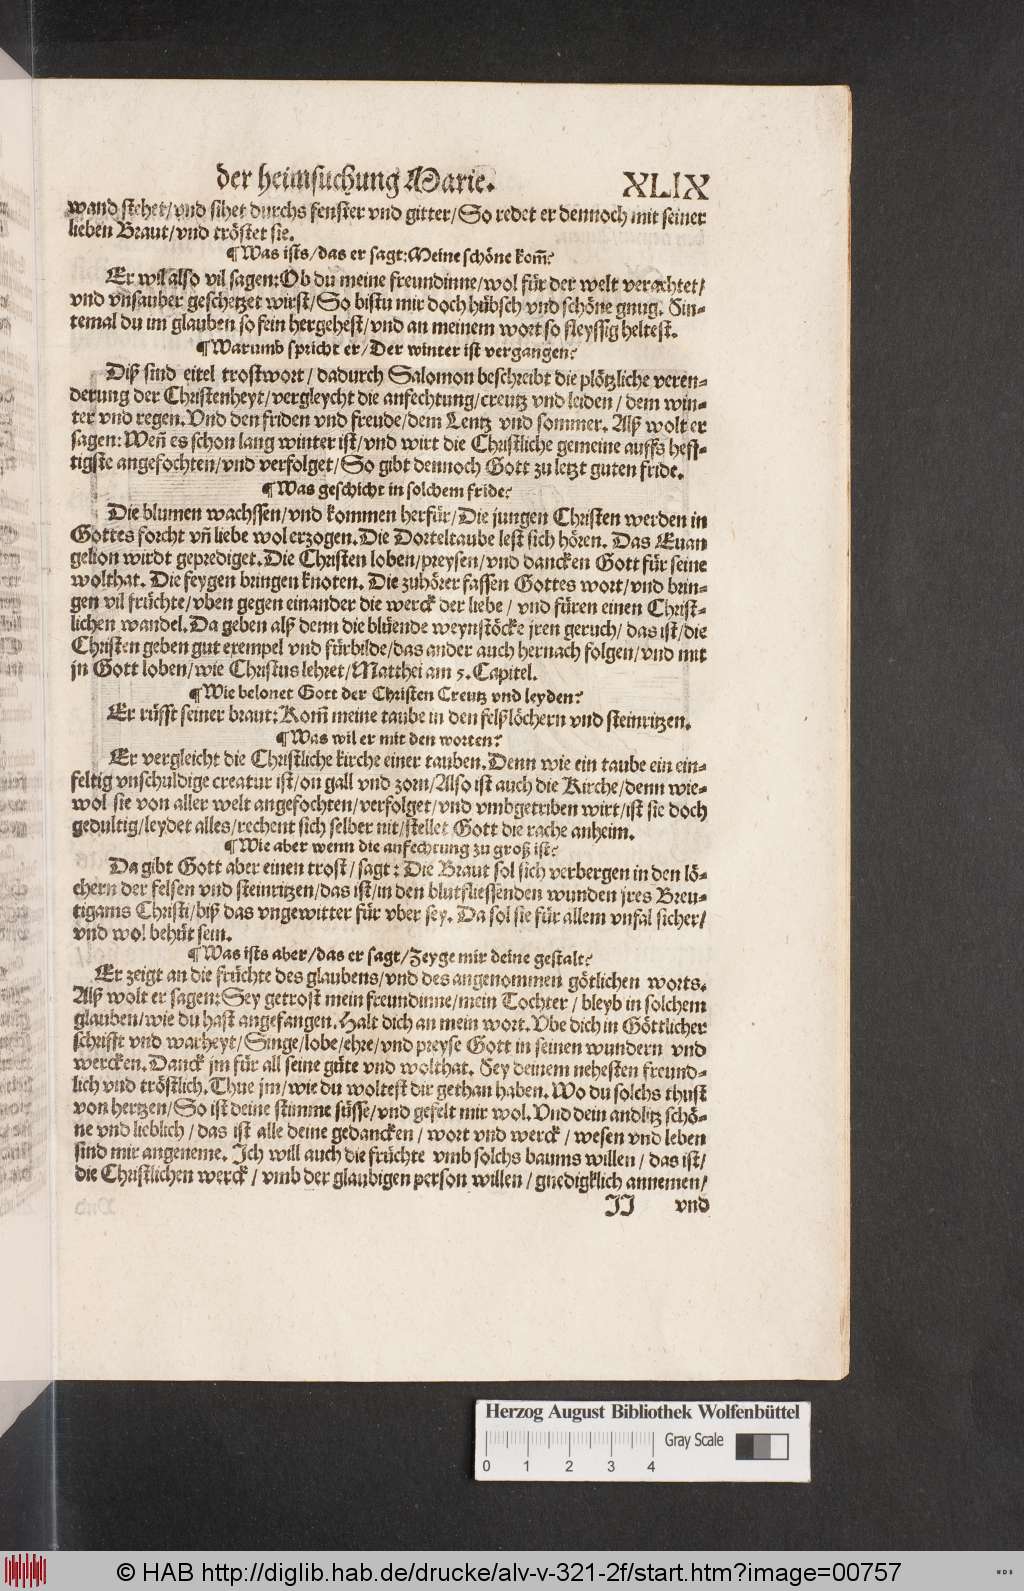 der heimsuchung Marie. XLIX
wand stehet/vnd sihet durchs fenster vnd gitter/So redet er dennoch mit seiner
lieben Braut/vnd tröstet sie.
¶ Was ists/das er sagt:Meine schöne kom̃?
Er wil also vil sagen:Ob du meine freundinne/wol für der welt verachtet/
vnd vnsauber geschetzet wirst/So bistu mir doch hübsch vnd schöne gnug. Sin-
temal du im glauben so fein hergehest/vnd an meinem wort so fleyssig heltest.
¶ Warumb spricht er/Der winter ist vergangen?
Diß sind eitel trostwort/dadurch Salomon beschreibt die plötzliche veren-
derung der Christenheyt/vergleycht die anfechtung/creutz vnd leiden/dem win-
ter vnd regen. Vnd den friden vnd freude/dem Lentz vnd sommer. Alß wolt er
sagen: Wen̄ es schon lang winter ist/vnd wirt die Christliche gemeine auffs heff-
tigste angefochten/vnd verfolget/So gibt dennoch Gott zu letzt guten fride.
¶ Was geschicht in solchem fride?
Die blumen wachssen/vnd kommen herfür/Die jungen Christen werden in
Gottes forcht vn̄ liebe wol erzogen. Die Dorteltaube lest sich hören. Das Euan
gelion wirdt geprediget. Die Christen loben/preysen/vnd dancken Gott für seine
wolthat. Die feygen bringen knoten. Die zuhörer fassen Gottes wort/vnd brin-
gen vil früchte/vben gegen einander die werck der liebe/vnd füren einen Christ-
lichen wandel. Da geben alß denn die blüende weynstöcke jren geruch/das ist/die
Christen geben gut exempel vnd fürbilde/das ander auch hernach folgen/vnd mit
jn Gott loben/wie Christus lehret/Matthei am 5. Capitel.
¶ Wie belonet Gott der Christen Creutz vnd leyden?
Er rüfft seiner braut: Kom̃ meine taube in den felßlöchern vnd steinritzen.
¶ Was wil er mit den worten?
Er vergleicht die Christliche kirche einer tauben. Denn wie ein taube ein ein-
feltig vnschuldige creatur ist/on gall vnd zorn/Also ist auch die Kirche/denn wie-
wol sie von aller welt angefochten/verfolget/vnd vmbgetriben wirt/ist sie doch
gedultig/leydet alles/rechent sich selber nit/stellet Gott die rache anheim.
¶ Wie aber wenn die anfechtung zu groß ist?
Da gibt Gott aber einen trost/sagt: Die Braut sol sich verbergen in den lö-
chern der felsen vnd steinritzen/das ist/in den blutfliessenden wunden jres Breu-
tigams Christi/biß das vngewitter für vber sey. Da sol sie für allem vnfal sicher/
vnd wol behüt sein.
¶ Was ists aber/das er sagt/Zeyge mir deine gestalt?
Er zeigt an die früchte des glaubens/vnd des angenommen götlichen worts.
Alß wolt er sagen: Sey getrost mein freundinne/mein Tochter/bleyb in solchem
glauben/wie du hast angefangen. Halt dich an mein wort. Vbe dich in Göttlicher
schrifft vnd warheyt/Singe/lobe/ehre/vnd preyse Gott in seinen wundern vnd
wercken. Danck jm für all seine güte vnd wolthat. Sey deinem nehesten freund-
lich vnd tröstlich. Thue jm/wie du woltest dir gethan haben. Wo du solchs thust
von hertzen/So ist deine stimme süsse/vnd gefelt mir wol. Vnd dein andlitz schö-
ne vnd lieblich/das ist alle deine gedancken/wort vnd werck/wesen vnd leben
sind mir angeneme. Ich will auch die früchte vmb solchs baums willen/das ist/
die Christlichen werck/vmb der glaubigen person willen/gnedigklich annemen/
II vnd
Herzog August Bibliothek Wolfenbüttel
Gray Scale
0 1 2 3 4
© HAB http://diglib.hab.de/drucke/alv-v-321-2f/start.htm?image=00757